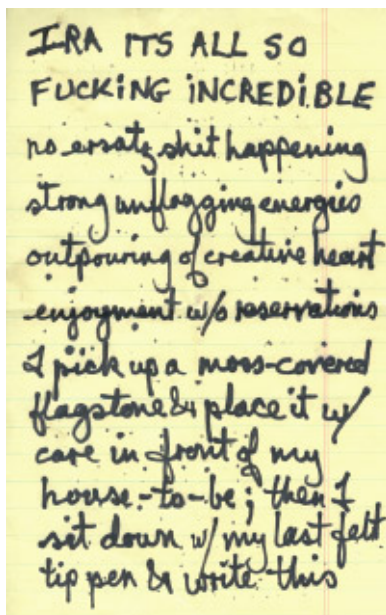 IRA ITS ALL SO
FUCKING INCREDIBLE
no ersatz shit happening
strong unflagging energies
outpouring of creative heart
enjoyment w/o reservations
I pick up a moss-covered
flagstone & place it w/
care in front of my
house-to-be; then I
sit down w/ my last felt
tip pen & write this